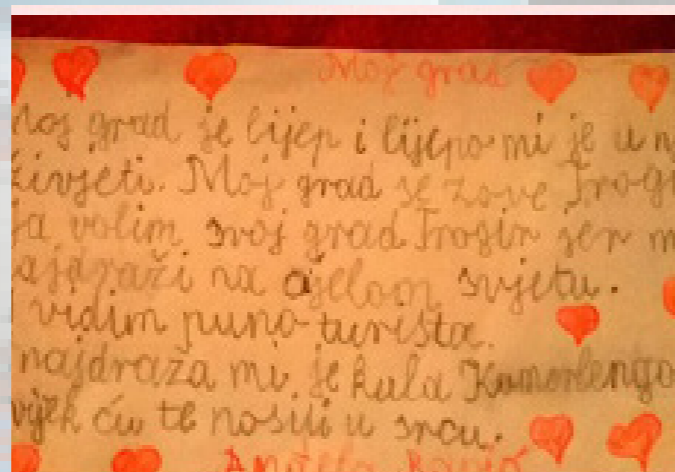 Moj grad
Moj grad je lijep i lijepo mi je u
živjeti. Moj grad se zove Trogi
ja volim svoj grad Trogir jer m
ajdraži na cijelom svjetu.
vidim puno turista.
najdraža mi je kula Kamerlengo
vijek ću te nositi u srcu.